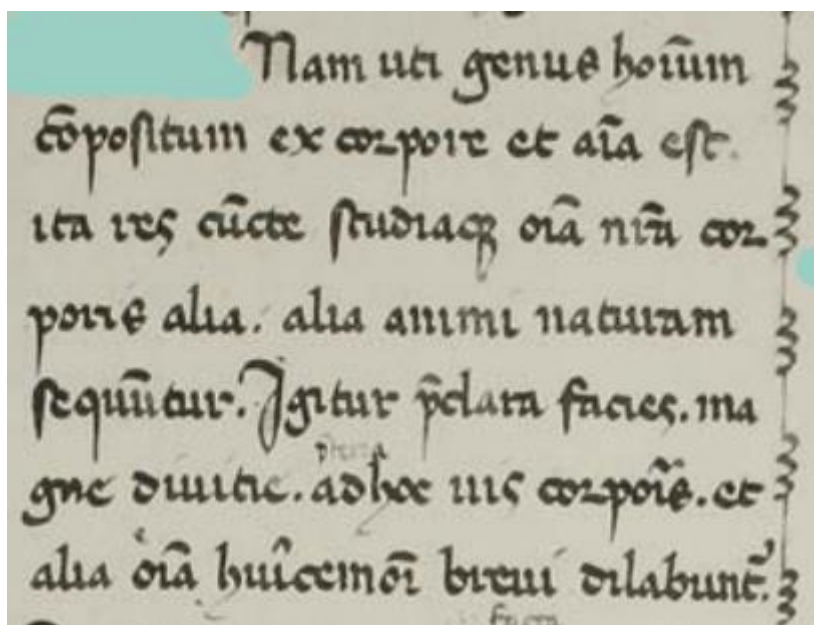 Nam uti genus hoiūm
cōpositum ex corpore et aīa est.
ita res cūcte studiaq oīa nr̄a cor
poris alia. alia animi naturam
sequūtur. Igitur p̄clara facies. ma
gne diuitie. adhoc uis corpoīs. et
alia oīa huīcemōi breui dilabunt̄.